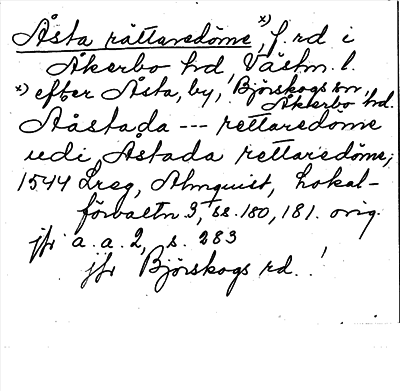 Åsta rättaredöme,x) f. rd i
Åkerbo hd, Västm. l.
x) efter Åsta, by, Björskogs sn,
Åkerbo hd.
Aåstada --- rettaredöme
udi Åstada rettaredöme;
1544 Lreg, Almquist, Lokal-
förvaltn 3, ss. 180, 181. orig.
jfr a. a. 2, s. 283
jfr Björskogs rd. !